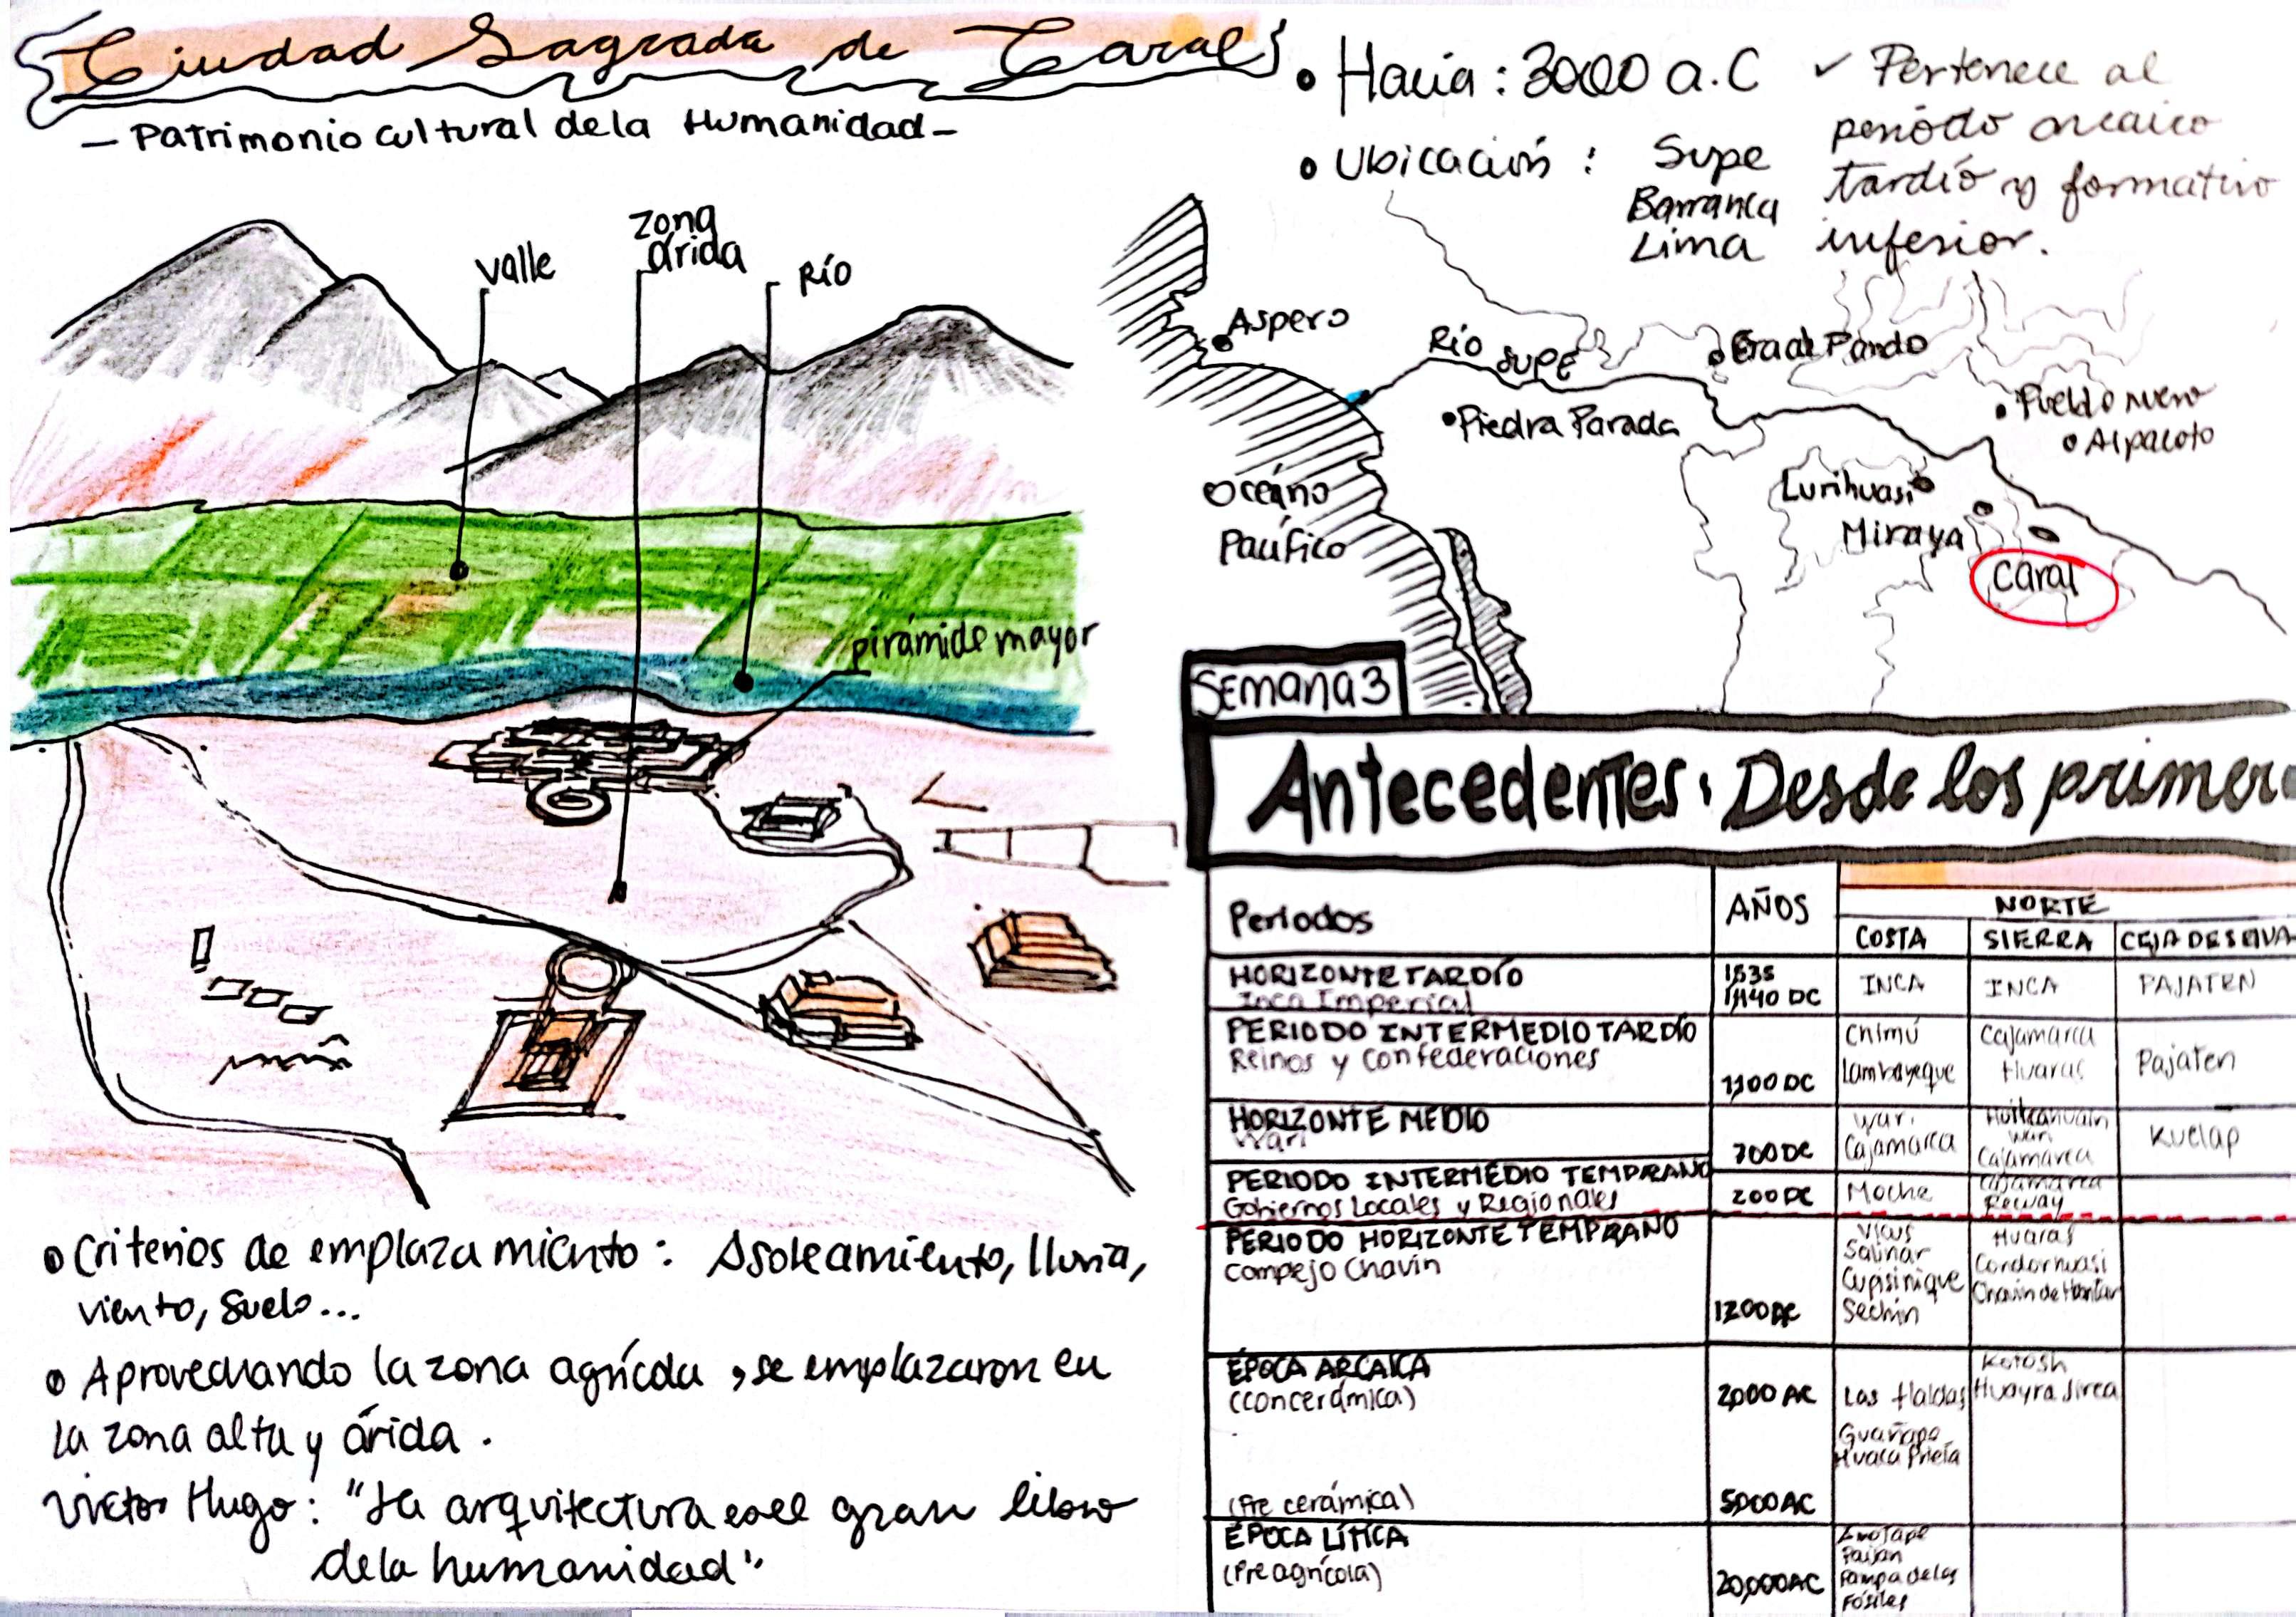 Ciudad Sagrada de Caral
- Patrimonio cultural de la Humanidad -
valle
zona árida
Río
pirámide mayor
• Criterios de emplazamiento: Asoleamiento, lluvia,
viento, suelo...
• Aprovechando la zona agrícola, se emplazaron en
la zona alta y árida.
Victor Hugo: "La arquitectura es el gran libro
de la humanidad"
• Hacia: 3000 a.C
• Ubicación: Supe
Barranca
Lima
✓ Pertenece al
periódo arcaico
tardío y formativo
inferior.
Aspero
Río Supe
Era de Pando
Piedra Parada
Pueblo nuevo
Alpacoto
Océano
Pacífico
Lurihuasi
Miraya
Caral
Semana 3
Antecedentes: Desde los primer
Periodos AÑOS NORTE
COSTA SIERRA CEJA DE SELVA
HORIZONTE TARDÍO 1535
Inca Imperial 1,440 DC INCA INCA PAJATEN
PERIODO INTERMEDIO TARDÍO Chimú Cajamarca
Reinos y Confederaciones 1,100 DC Lambayeque Huaras Pajaten
HORIZONTE MEDIO Wari
Wari 700 DC Cajamarca Wari Cajamarca Kuelap
PERIODO INTERMEDIO TEMPRANO Cajamarca
Gobiernos Locales y Regionales 200 DC Moche Recuay
PERIODO HORIZONTE TEMPRANO Vicus Huaras
Compejo Chavín Salinar Condorhuasi
Cupisinique Chavin de Huantar
1200 AC Sechin
ÉPOCA ARCAICA Kotosh
(con cerámica) 2,000 AC Las Haldas Huayra Jirca
Guañape
Huaca Prieta
(Pre cerámica) 5,000 AC
ÉPOCA LÍTICA Amotape
(Pre agrícola) Paijan
20,000 AC Pampa de los
Fósiles